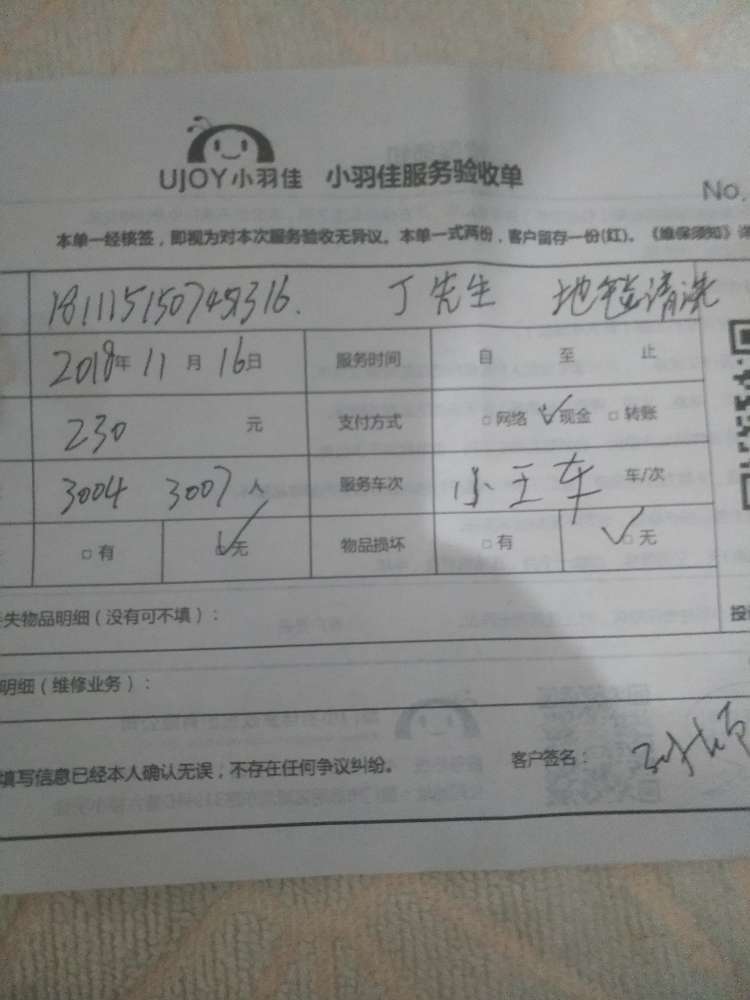 UJOY小羽佳 小羽佳服务验收单
No.
本单一经核签，即视为对本次服务验收无异议。本单一式两份，客户留存一份(红)。《维保须知》详
丁先生 地毯清洗
2018年 11月 16日 服务时间 自 至 止
230 元 支付方式 □网络 ☑现金 □转账
3004 3007人 服务车次 小王车 车/次
□有 ☑无 物品损坏 □有 ☑无
失物品明细（没有可不填）：
明细（维修业务）：
填写信息已经本人确认无误，不存在任何争议纠纷。 客户签名：